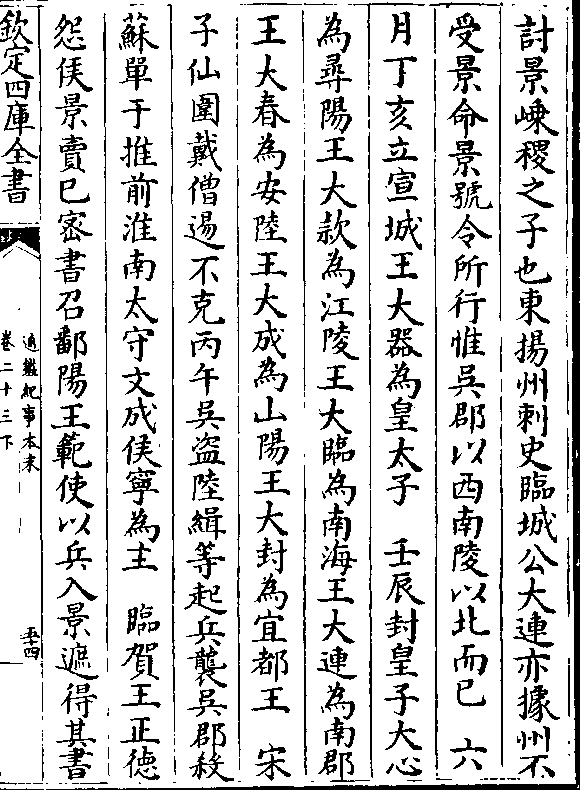 討景嵊稷之子也東揚州刺史臨城公大連亦據州不
受景命景號令所行惟吳郡以西南陵以北而已　六
月丁亥立宣城王大器為皇太子　壬辰封皇子大心
為尋陽王大款為江陵王大臨為南海王大連為南郡
王大春為安陸王大成為山陽王大封為宜都王　宋
子仙圍戴僧逷不克丙午吳盜陸緝等起兵襲吳郡殺
蘇單于推前淮南太守文成侯寧為主　臨賀王正德
怨侯景賣己密書召鄱陽王範使以兵入景遮得其書
欽定四庫全書
通鑑紀事本末
卷二十三下
五十四